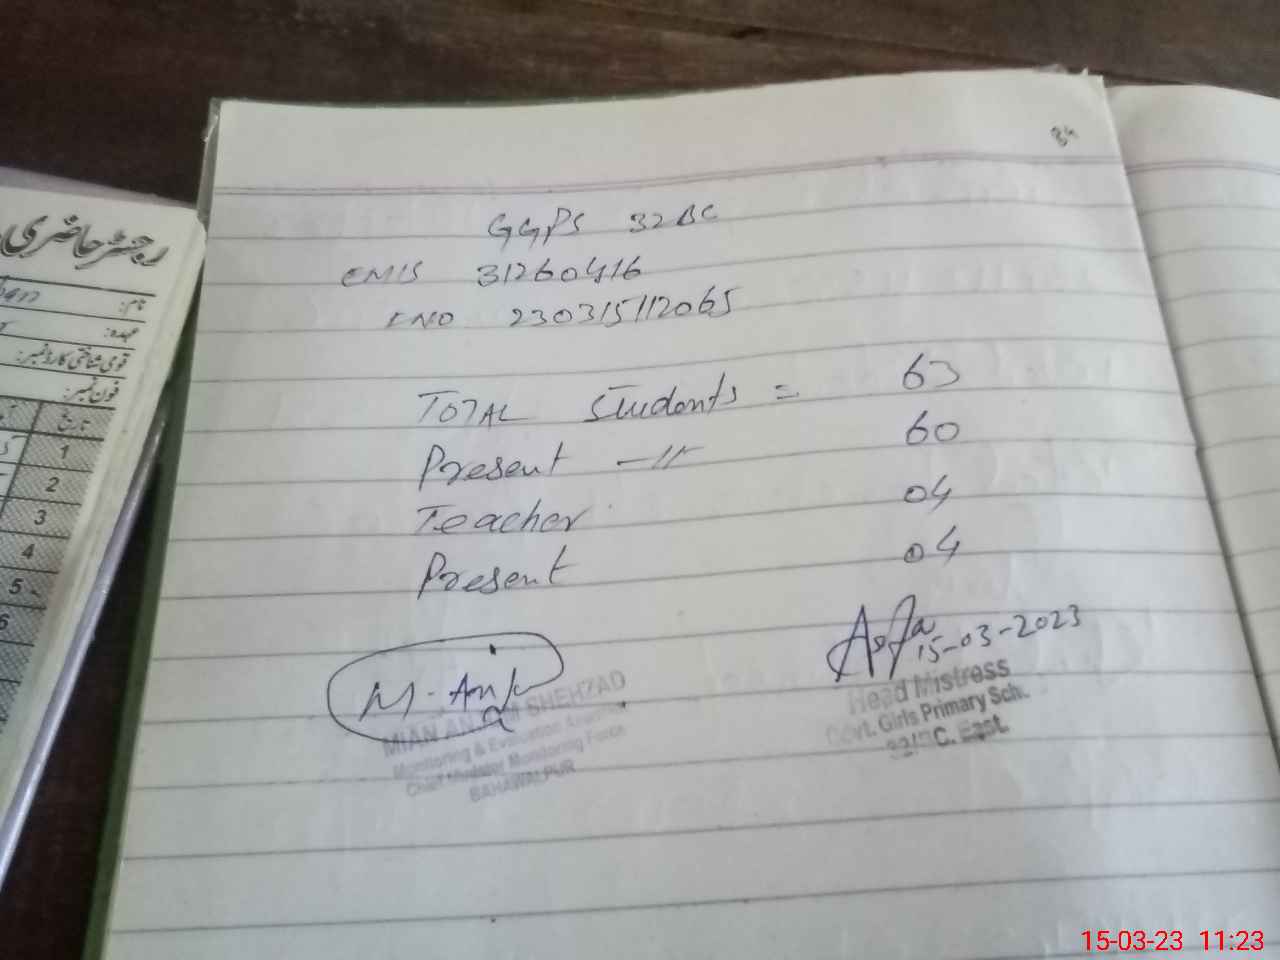 84
GGPS 32BC
EMIS 31260416
ENO 230315112065
TOTAL Students = 63
Present -〃- 60
Teacher 04
Present 04
M. Anj
MIAN ANJUM SHEHZAD
Monitoring & Evaluation
Chief Minister Monitoring Force
BAHAWALPUR
15-03-2023
Head Mistress
Govt. Girls Primary Sch.
32/BC. East.
رجسٹر حاضری
نام:
عہدہ:
قومی شناختی کارڈ نمبر:
فون نمبر:
تاریخ
1
2
3
4
5
6
15-03-23 11:23